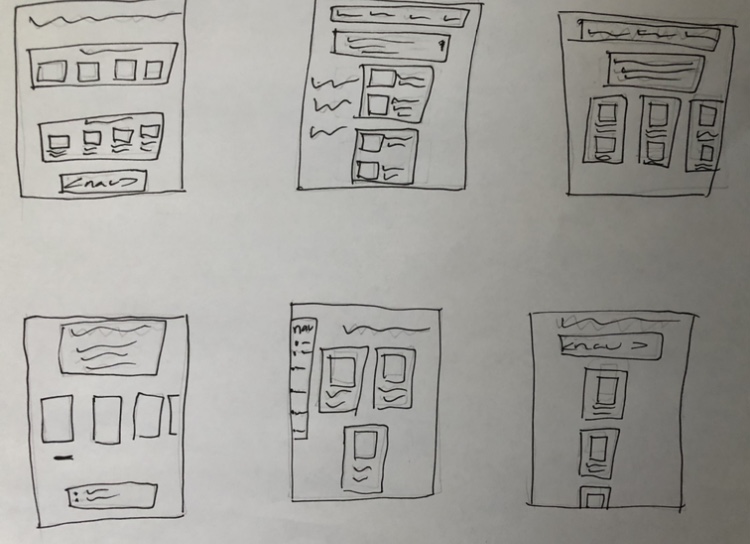 <nav>
nav
<nav>